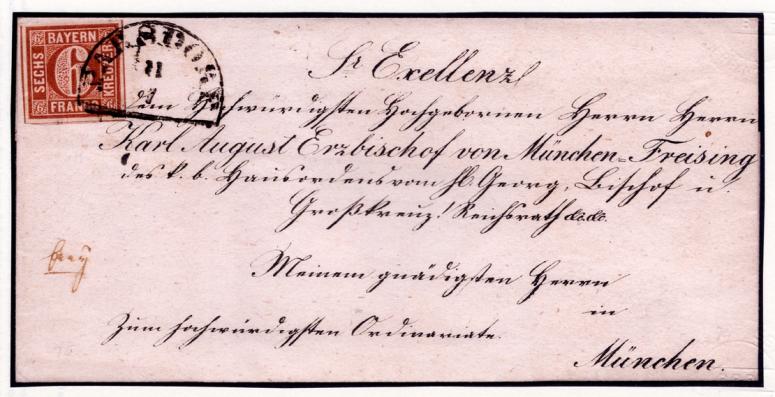 BAYERN
SECHS
6
KREUZER
FRANCO
11
Sr Exellenz!
dem Hochwürdigsten Hochgebornen Herrn Herrn
Karl August Erzbischof von München=Freising
des k. b. Hausordens vom hl. Georg, Bischof u.
Großkreuz! Reichsrath &c. &c.
Meinem gnädigsten Herrn
in
Zum hochwürdigsten Ordinariate.
München.